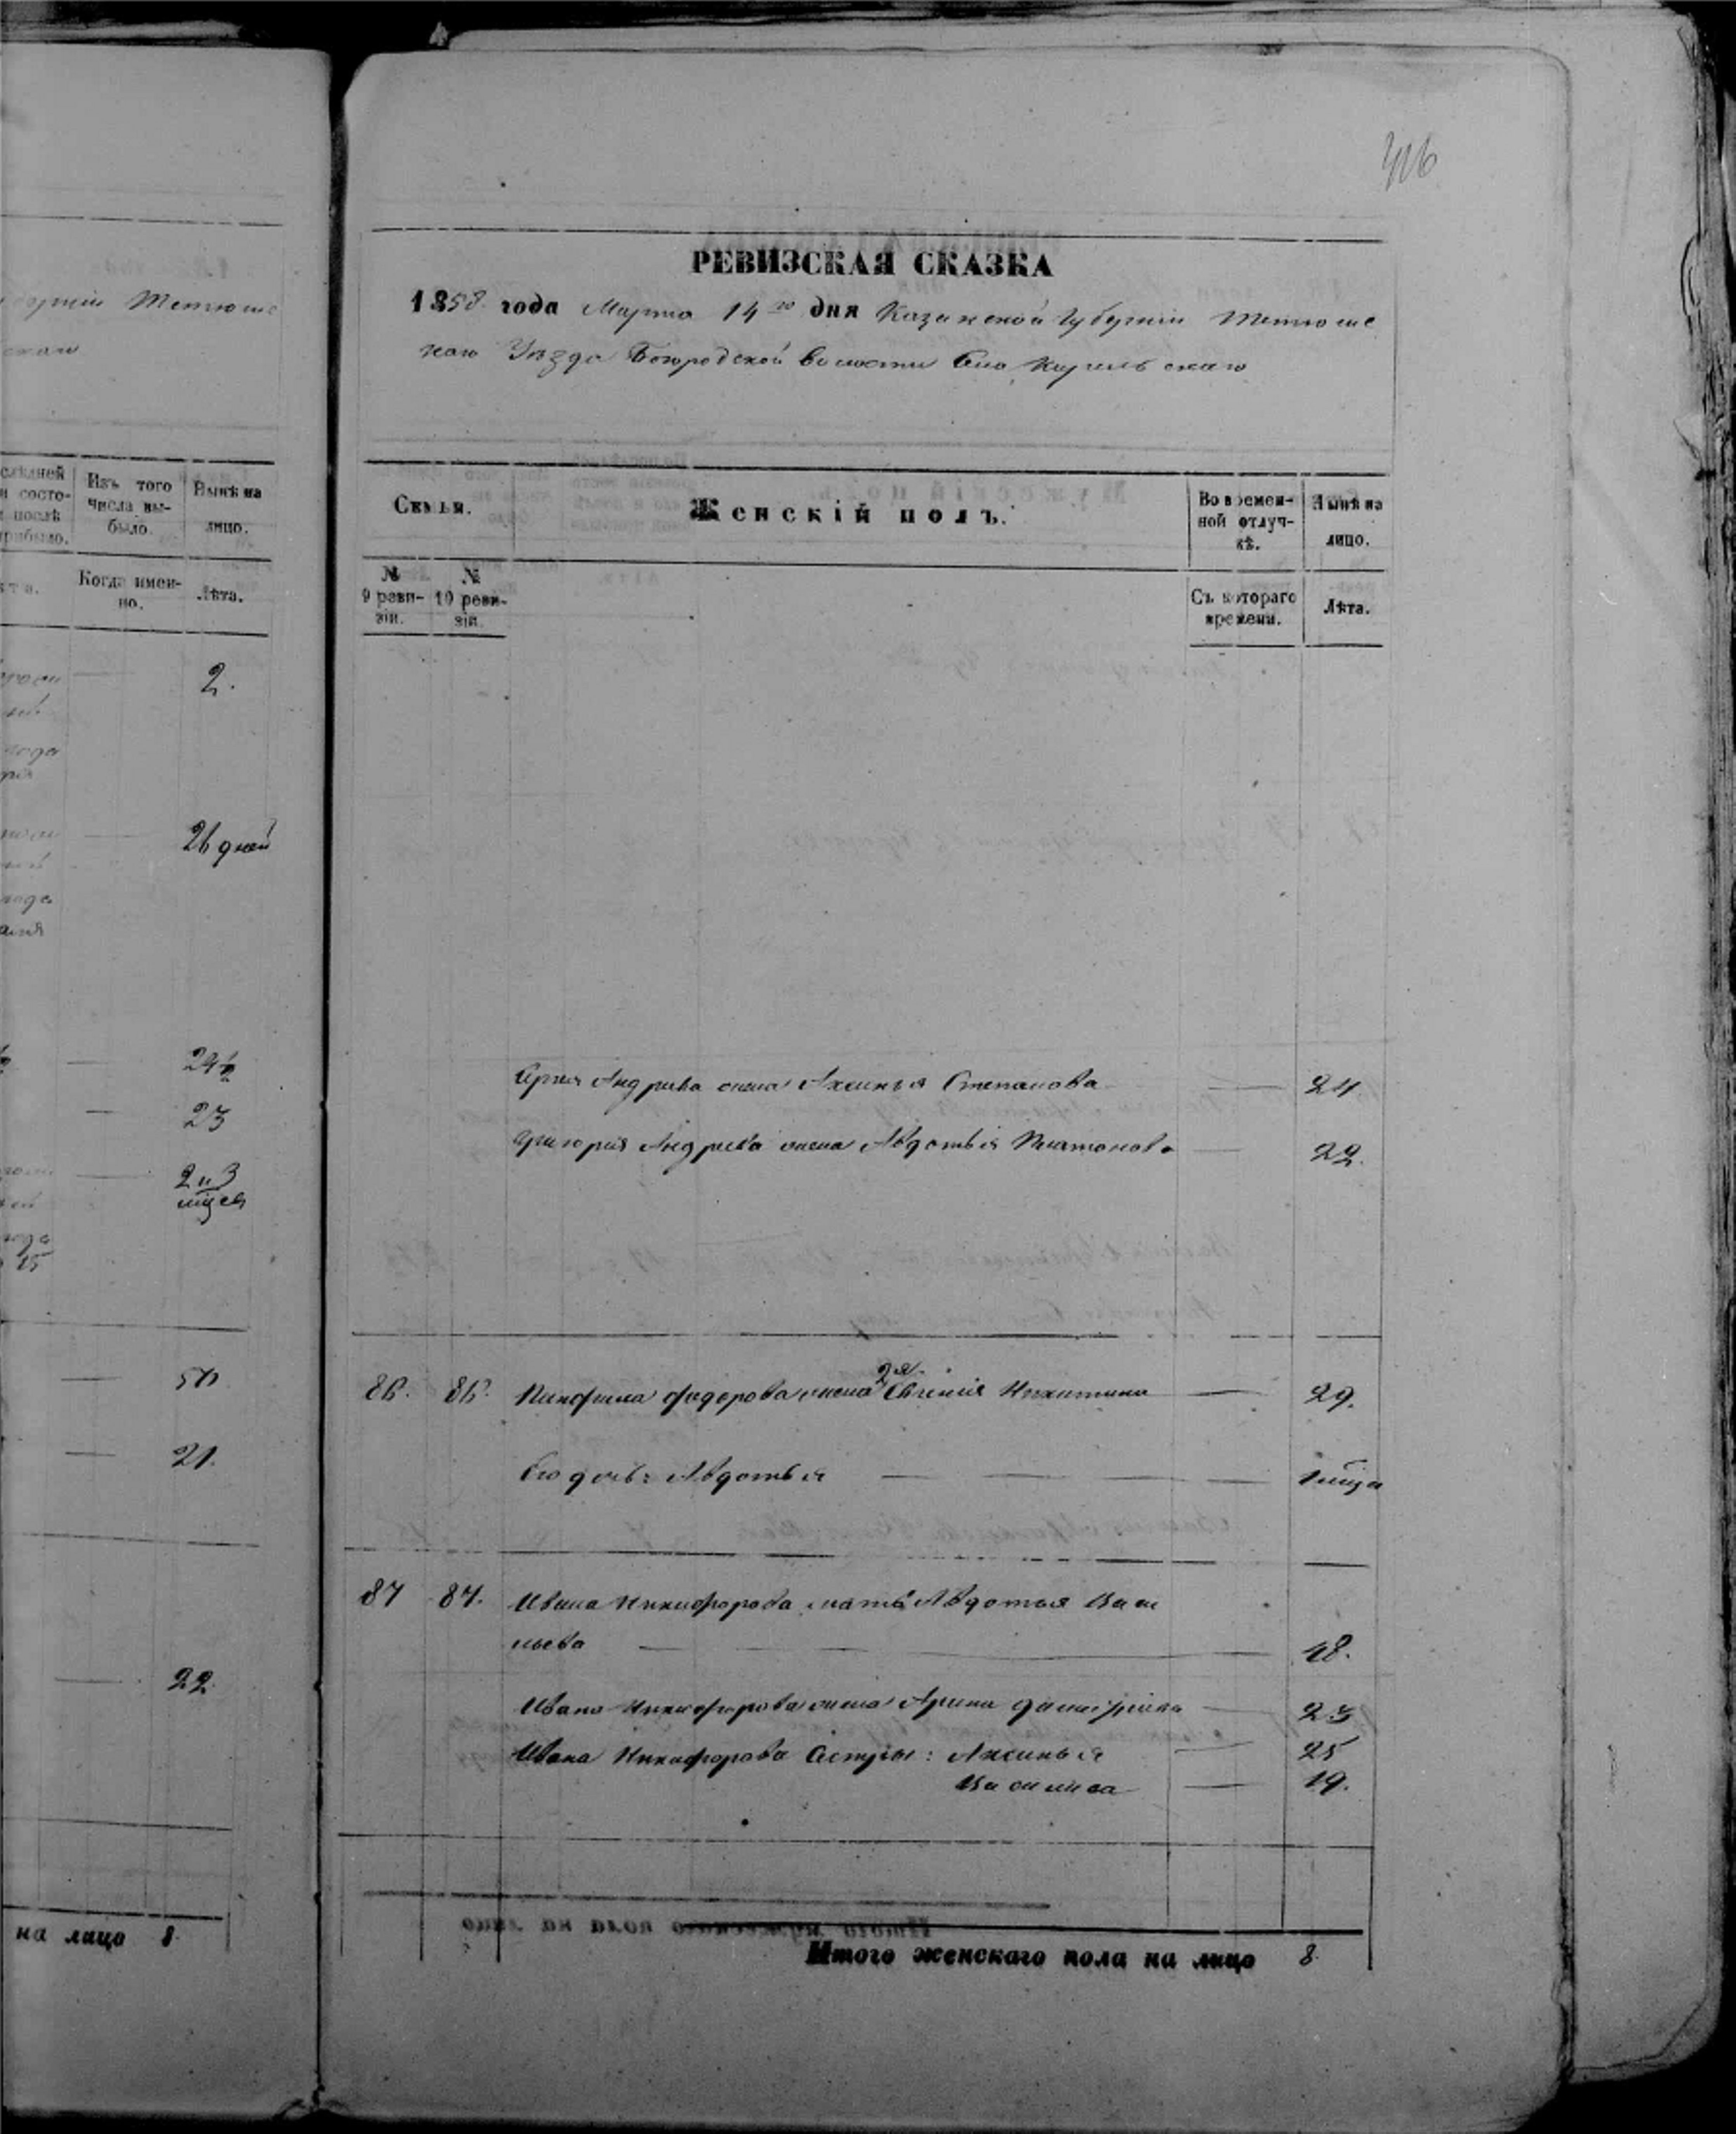 416
РЕВИЗСКАЯ СКАЗКА
1858 года Марта 14го дня Казанской Губернии Тетюшс
каго Уѣзда Богородской волости Села
Семьи.
Женскій полъ.
Во времен-
ной отлуч-
кѣ.
Нынѣ на
лицо.
№
9 реви-
зіи.
№
10 реви-
зіи.
Съ котораго
времени.
Лѣта.
Андреева жена Аксинья Степанова — 24
Григорія Андреева жена Авдотья Платонова — 22.
86. 86. Федорова жена 2я Евгенія Никитина — 29.
Его дочь Авдотья — 1 мца
87 87. Ивана Никифорова мать Авдотья Васи
льева — 48.
Ивана Никифорова жена Арина — 23
Ивана Никифорова Сестры: Аксинья — 25
Василиса — 19.
Итого женскаго пола на лицо 8.
губерніи Тетюшс
скаго
слѣдней
и состо-
послѣ
прибыло.
Изъ того
числа вы-
было.
Нынѣ на
лицо.
Когда имен-
но.
Лѣта.
2.
26 дней
24
23
2 и 3
мцев
21.
22
на лицо 8.